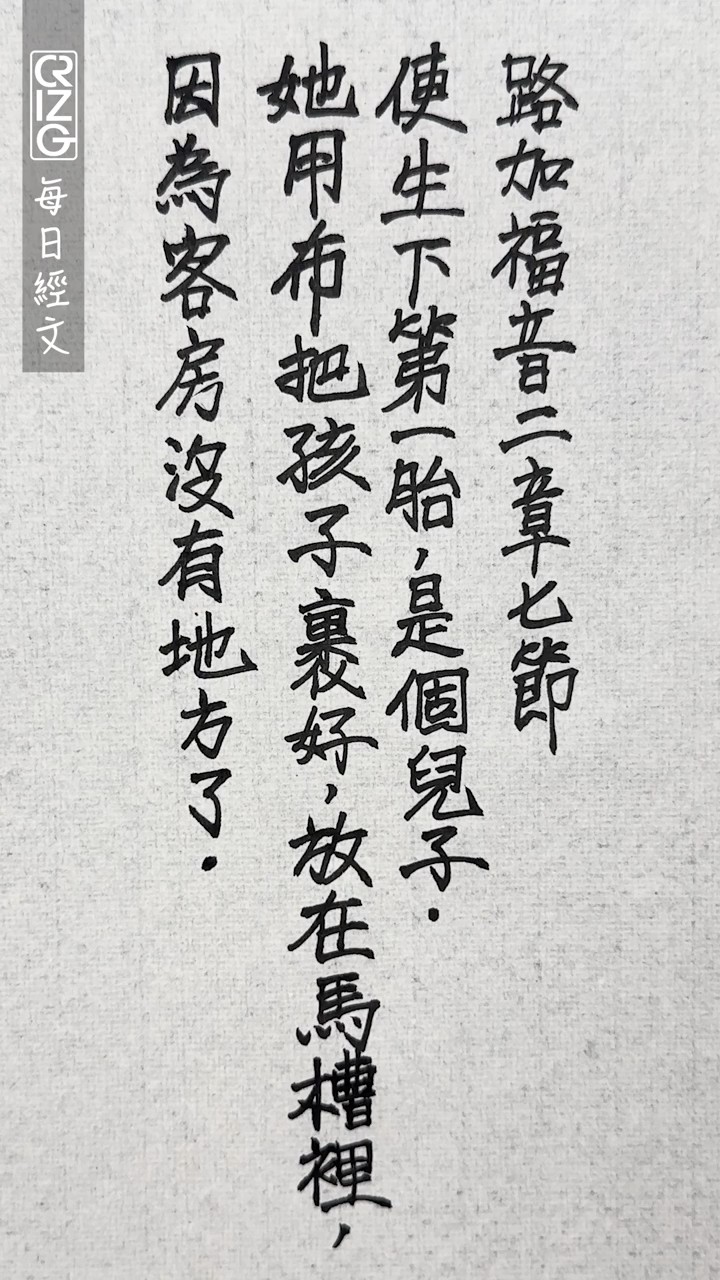 路加福音二章七節
使生下第一胎,是個兒子.
她用布把孩子裹好,放在馬槽裡,
因為客房沒有地方了.
CRIZG
每日經文